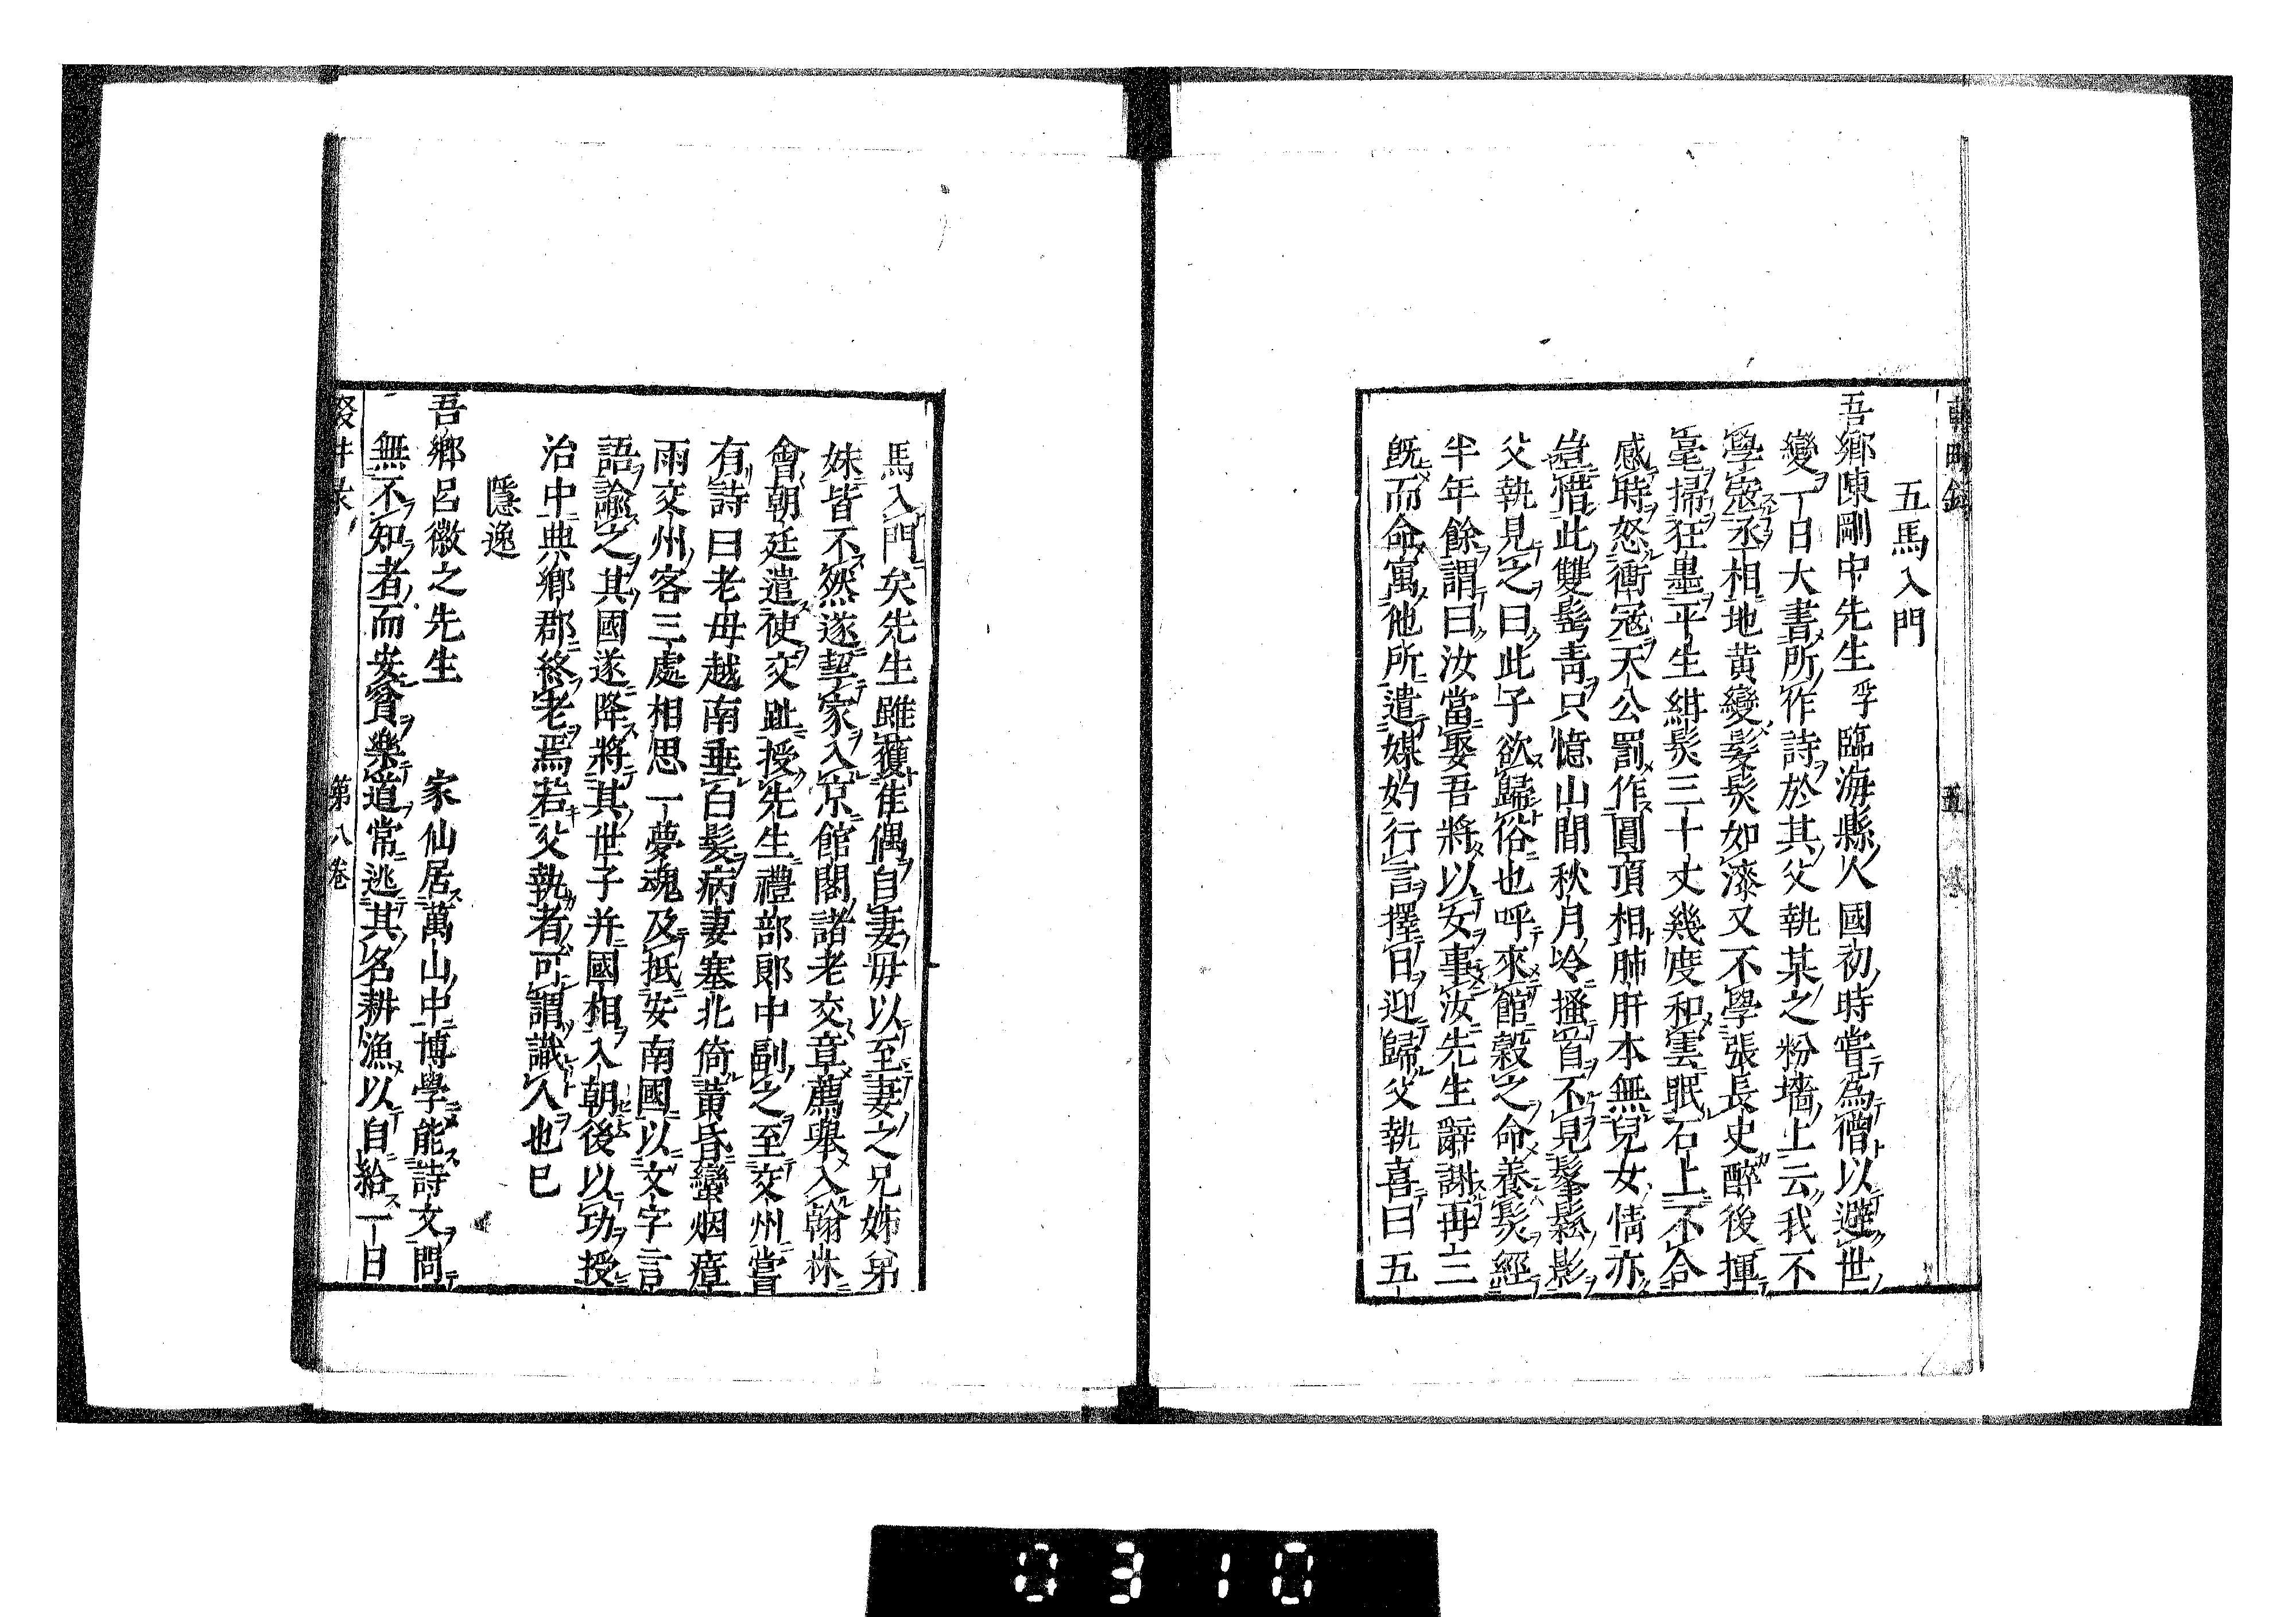 五馬入門
吾鄉陳剛中先生孚臨海縣人國初時嘗為僧以避世
變一日大書所作詩於其父執某之粉墻上云我不
學寇丞相地黃變髮髮如漆又不學張長史醉後揮
毫掃狂墨平生紺髮三十丈幾度和雲眠石上不合
感時怒衝冠天公罰作圓頂相肺肝本無兒女情亦
豈惜此雙鬢青只憶山間秋月冷搔首不見鬖鬆影
父執見之曰此子欲歸俗也呼來館穀之命養髮經
半年餘謂曰汝當娶吾將以女事汝先生辭謝再三
既而命寓他所遣媒妁行言擇日迎歸父執喜曰五
馬入門矣先生雖獲佳偶自妻毋以至妻之兄姊弟
妹皆不然遂挈家入京館閣諸老交章薦舉入翰林
會朝廷遣使交趾授先生禮部郎中副之至交州嘗
有詩曰老母越南垂白髮病妻塞北倚黃昏蠻烟瘴
雨交州客三處相思一夢魂及抵安南國以文字言
語諭之其國遂降將其世子并國相入朝後以功授
治中典鄉郡終老焉若父執者可謂識人也巳
隱逸
吾鄉呂徽之先生 家仙居萬山中博學能詩文問
無不知者而安貧樂道常逃其名耕漁以自給一日
第八卷
0310